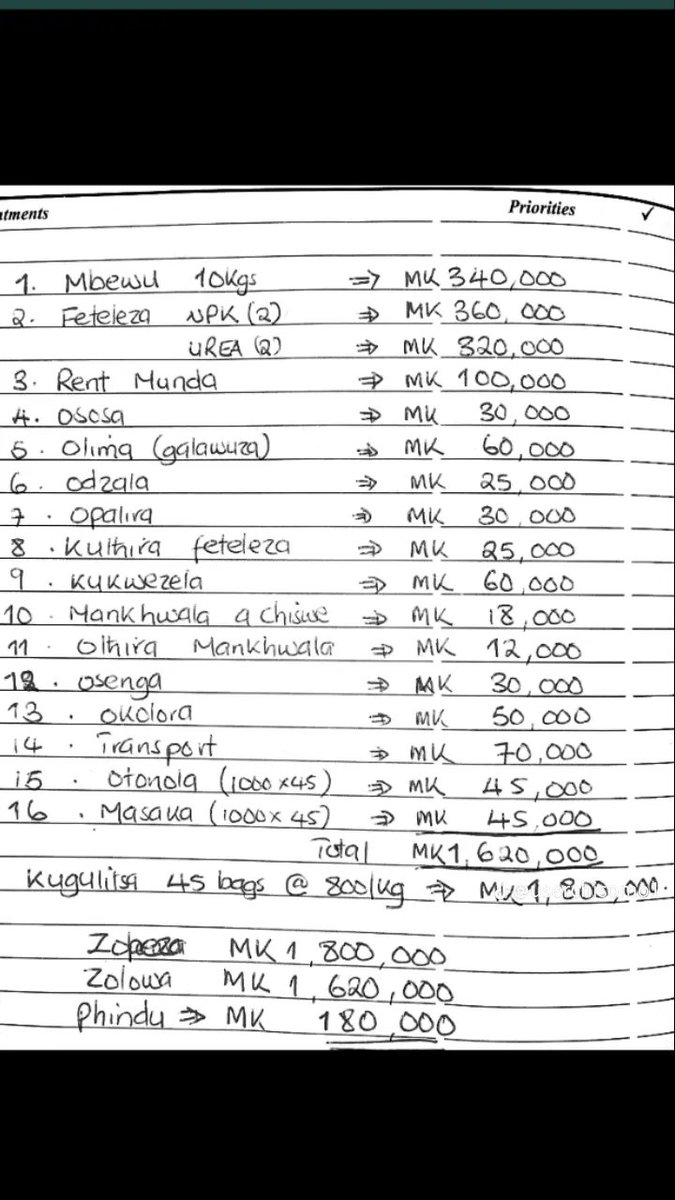 ntments Priorities ✓
1. Mbewu 10Kgs => MK 340,000
2. Feteleza NPK (2) => MK 360,000
UREA (2) => MK 320,000
3. Rent Munda => MK 100,000
4. Ososa => MK 30,000
5. Olima (galawuza) => MK 60,000
6. Odzala => MK 25,000
7. Opalira => MK 30,000
8. Kuthira feteleza => MK 25,000
9. Kukwezela => MK 60,000
10. Mankhwala a Chiswe => MK 18,000
11. Othira Mankhwala => MK 12,000
12. Osenga => MK 30,000
13. Okolora => MK 50,000
14. Transport => MK 70,000
15. Otonola (1000x45) => MK 45,000
16. Masaka (1000x45) => MK 45,000
Total MK1,620,000
Kugulitsa 45 bags @ 800/kg => MK1,800,000.
Zopeza MK 1,800,000
Zolowa MK 1,620,000
Phindu => MK 180,000